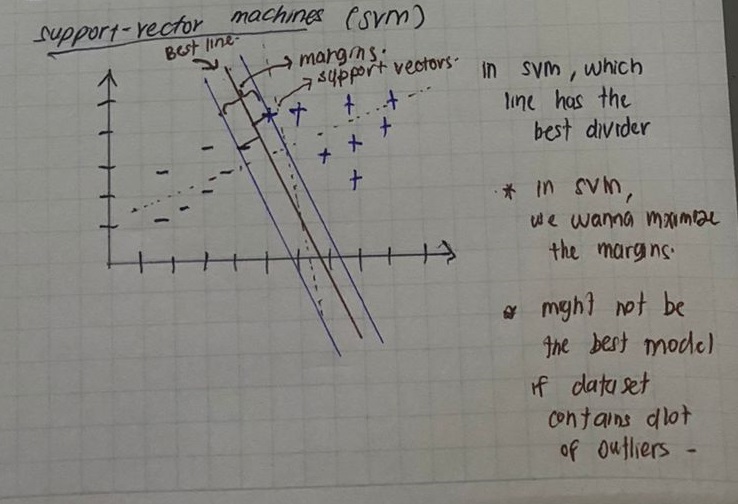 support-vector machines (svm)
Best line.
margins.
support vectors.
in svm, which
line has the
best divider
* in svm,
we wanna maximize
the margins.
* might not be
the best model
if dataset
contains alot
of outliers -